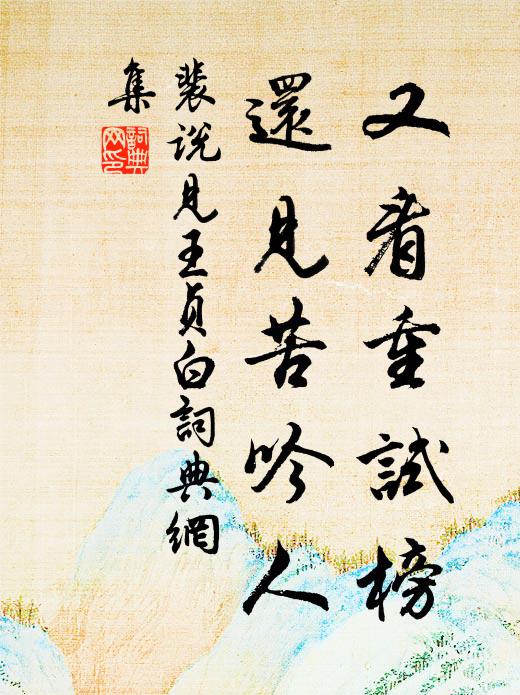 又看重試榜
還見苦吟人
裴說見王貞白詞典網
集
詞典
网印